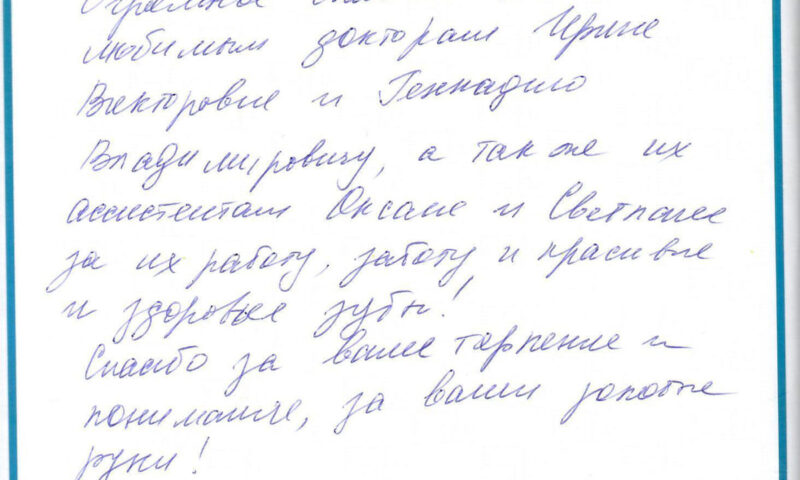 Огромное
любимым докторам Ирине
Викторовне и Геннадию
Владимировичу, а так же их
ассистентам Оксане и Светлане
за их работу, заботу и красивые
и здоровые зубы!
Спасибо за ваше терпение и
понимание, за ваши золотые
руки!